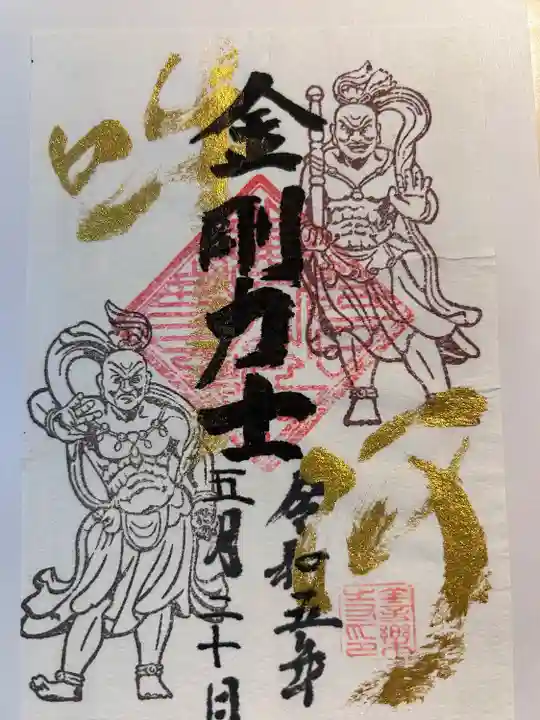 金剛力士
令和五年
五月三十日
吽
阿